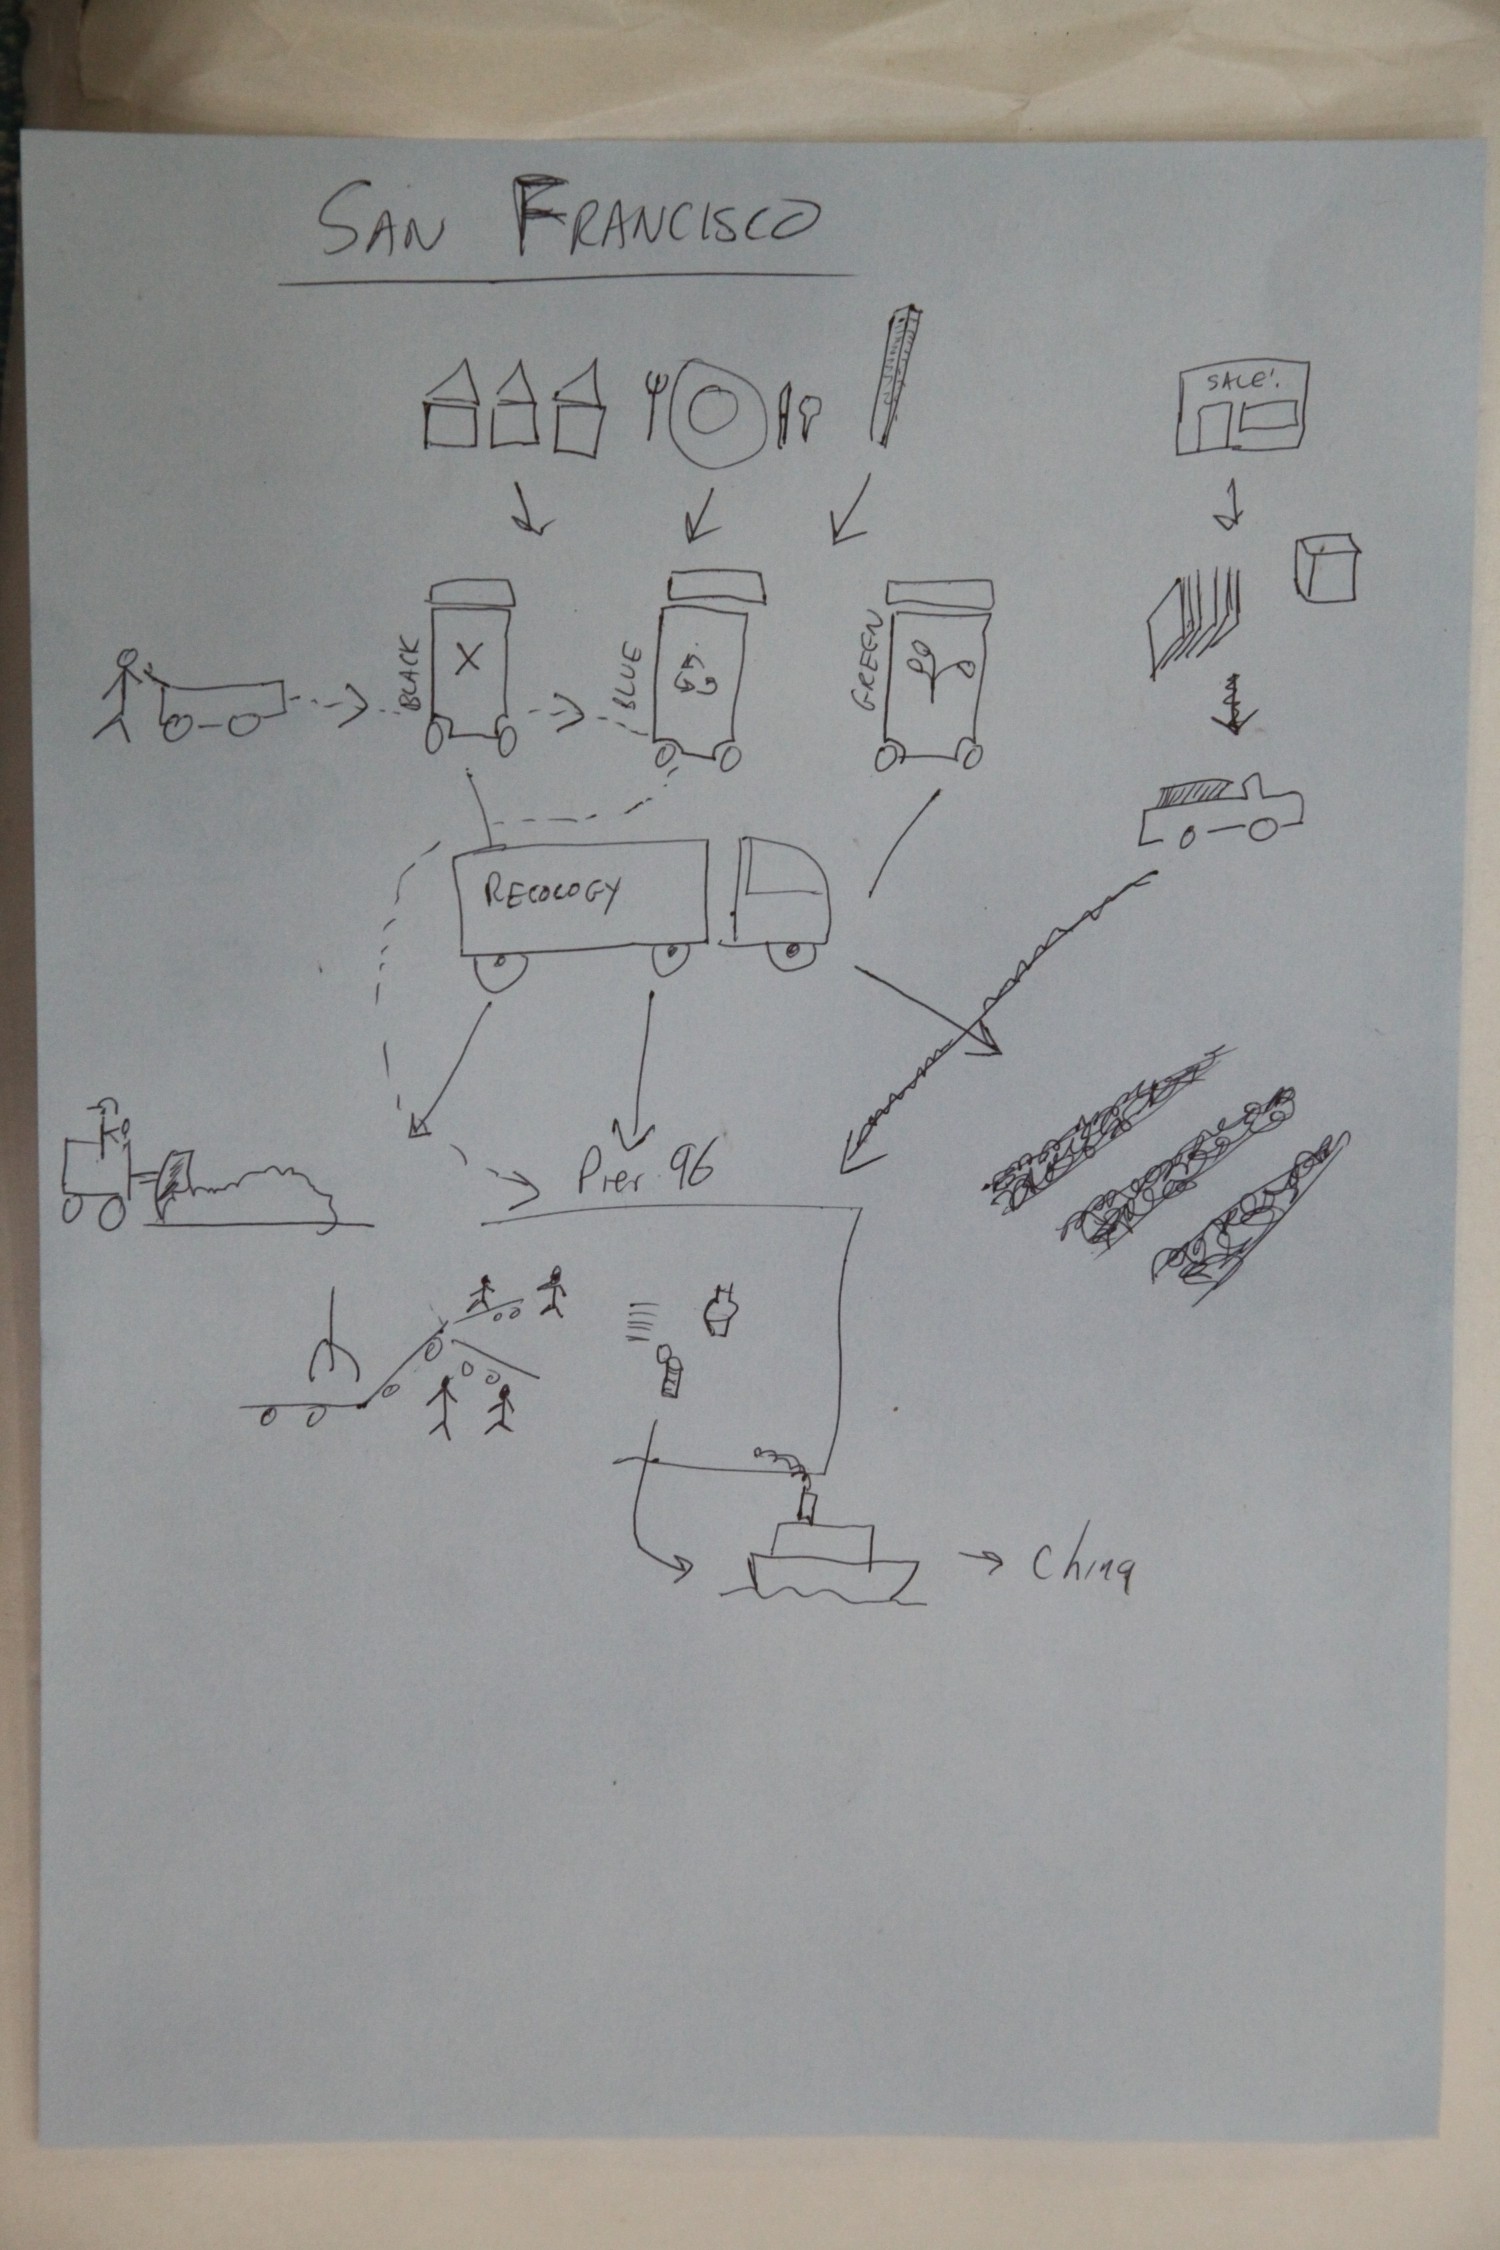 SAN FRANCISCO
SALE!
BLACK
BLUE
GREEN
RECOLOGY
Pier 96
China